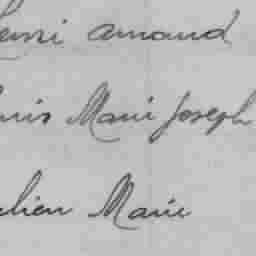 Henri Amand
Louis Marie Joseph
Julien Marie